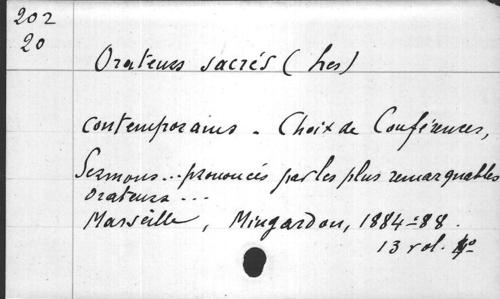 202
20
Orateurs sacrés (Les)
contemporains - Choix de Conférences,
Sermons... prononcés par les plus remarquables
orateurs...
Marseille, Mingardon, 1884-88.
13 vol. 4º